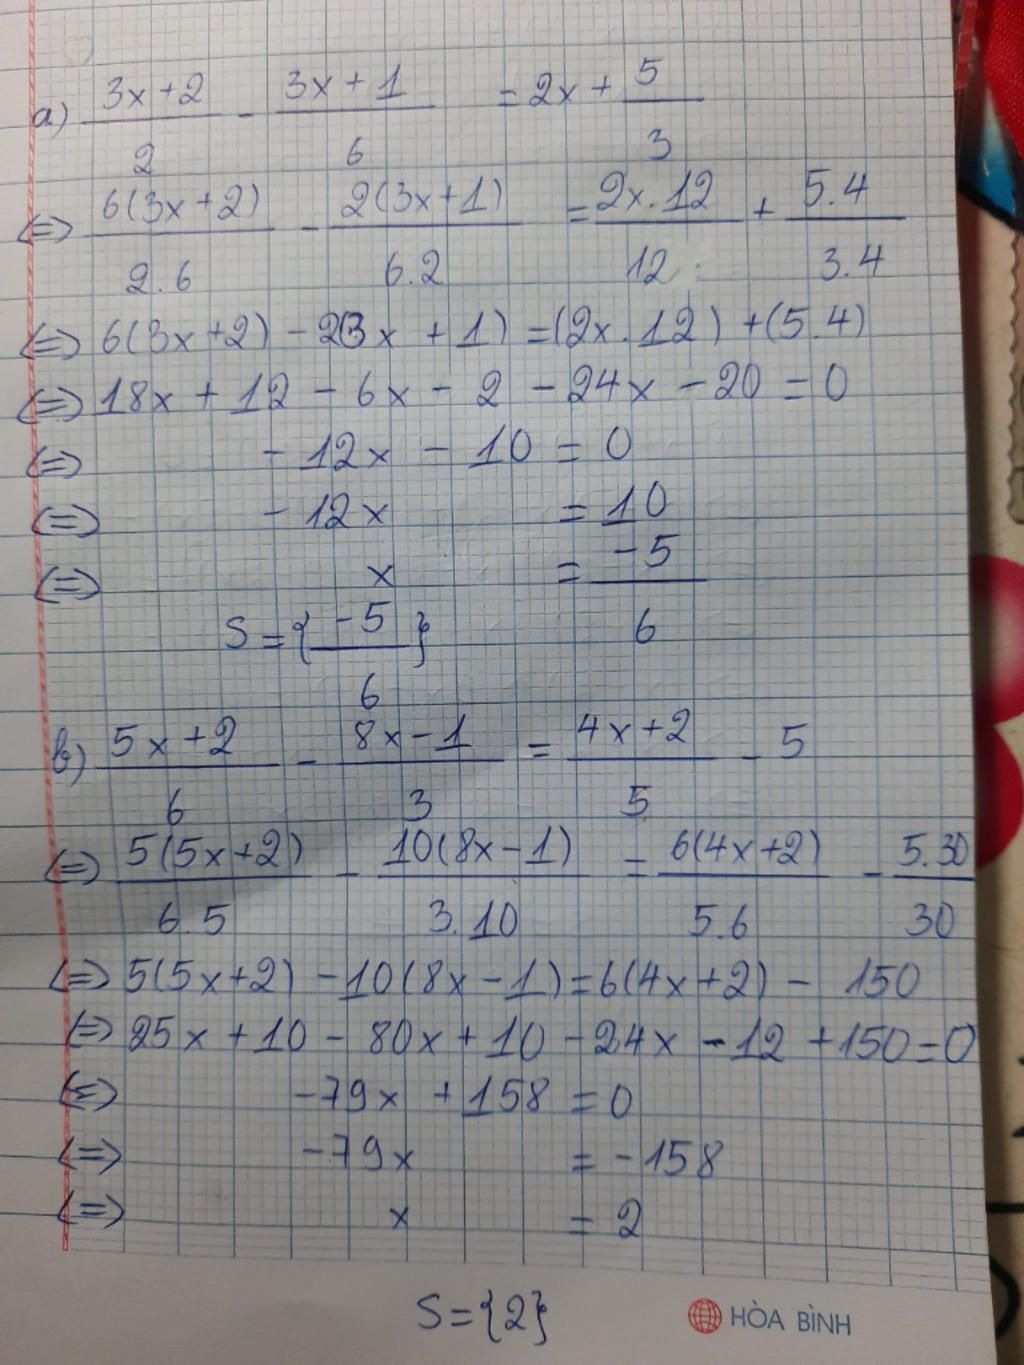 a) (3x+2)/2 - (3x+1)/6 = 2x + 5/3
(=) 6(3x+2)/2.6 - 2(3x+1)/6.2 = 2x.12/12 + 5.4/3.4
(=) 6(3x+2) - 2(3x+1) = (2x.12) + (5.4)
(=) 18x + 12 - 6x - 2 - 24x - 20 = 0
(=) -12x - 10 = 0
(=) -12x = 10
(=) x = -5/6
S = {-5/6}
b) (5x+2)/6 - (8x-1)/3 = (4x+2)/5 - 5
(=) 5(5x+2)/6.5 - 10(8x-1)/3.10 = 6(4x+2)/5.6 - 5.30/30
(=) 5(5x+2) - 10(8x-1) = 6(4x+2) - 150
(=) 25x + 10 - 80x + 10 - 24x - 12 + 150 = 0
(=) -79x + 158 = 0
(=) -79x = -158
(=) x = 2
S = {2}
HÒA BÌNH